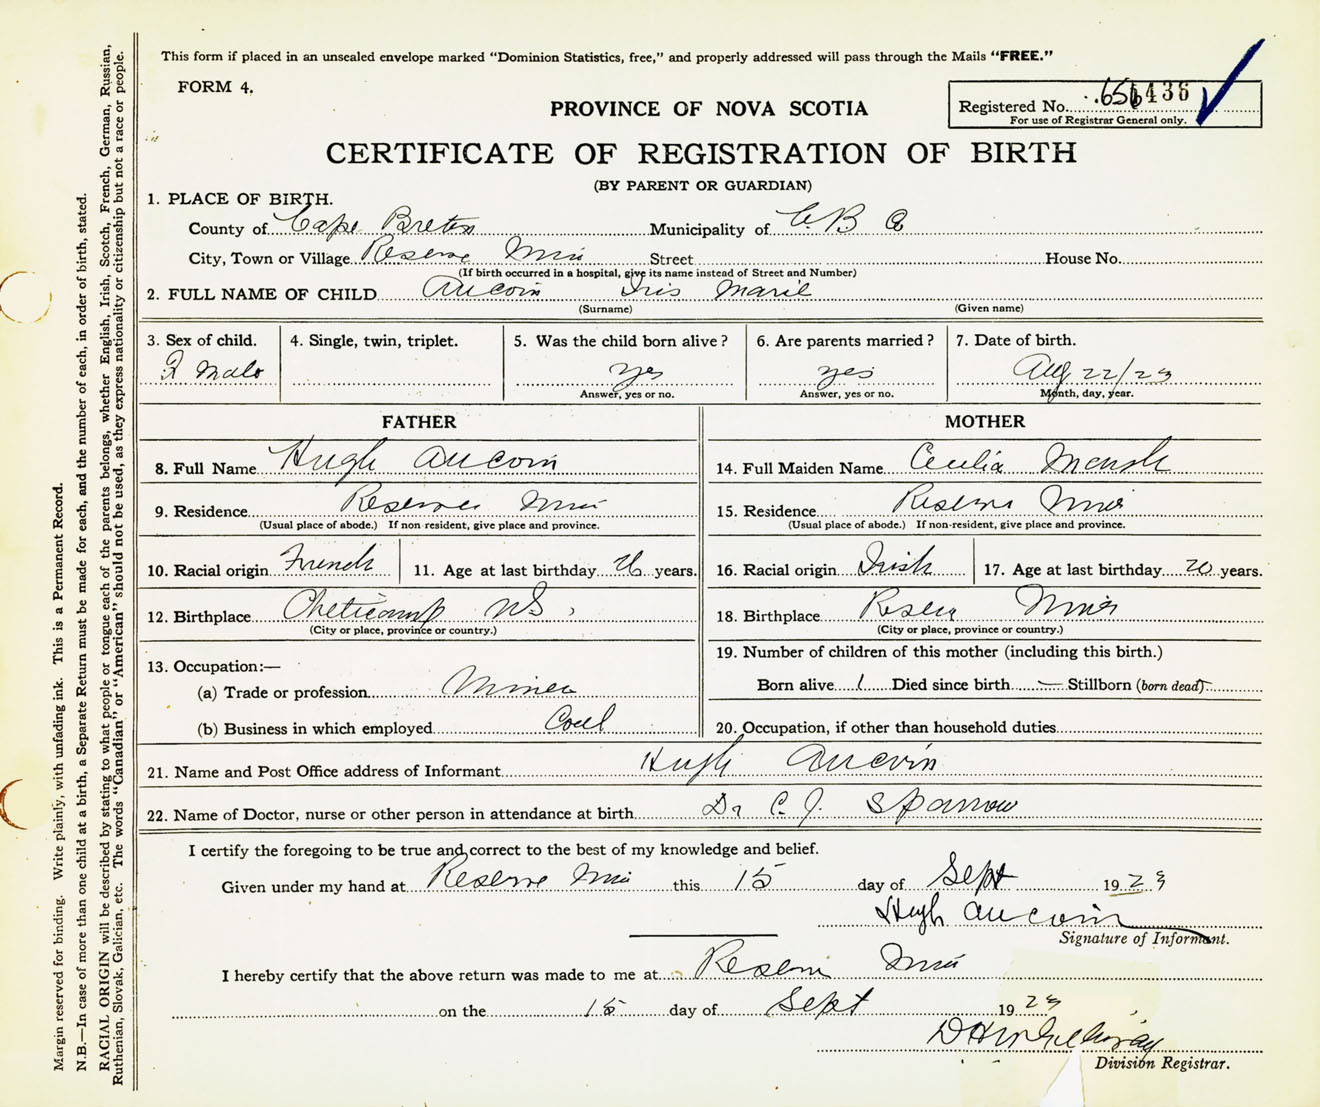 This form if placed in an unsealed envelope marked "Dominion Statistics, free," and properly addressed will pass through the Mails "FREE."
FORM 4.
PROVINCE OF NOVA SCOTIA
Registered No.
For use of Registrar General only.
CERTIFICATE OF REGISTRATION OF BIRTH
(BY PARENT OR GUARDIAN)
1. PLACE OF BIRTH.
County of Cape Breton Municipality of C. B Co
City, Town or Village Reserve Mines Street House No.
(If birth occurred in a hospital, give its name instead of Street and Number)
2. FULL NAME OF CHILD Aucoin Iris Marie
(Surname) (Given name)
3. Sex of child. 4. Single, twin, triplet. 5. Was the child born alive? 6. Are parents married? 7. Date of birth.
yes yes Aug 22/23
Answer, yes or no. Answer, yes or no. Month, day, year.
FATHER MOTHER
8. Full Name Hugh Aucoin 14. Full Maiden Name Cecilia
9. Residence Reserve Mines 15. Residence Reserve Mines
(Usual place of abode.) If non-resident, give place and province. (Usual place of abode.) If non-resident, give place and province.
10. Racial origin French 11. Age at last birthday 26 years. 16. Racial origin Irish 17. Age at last birthday 20 years.
12. Birthplace Cheticamp NS, 18. Birthplace Reserve Mines
(City or place, province or country.) (City or place, province or country.)
13. Occupation:— 19. Number of children of this mother (including this birth.)
(a) Trade or profession Miner Born alive 1 Died since birth — Stillborn (born dead)
(b) Business in which employed Coal 20. Occupation, if other than household duties
21. Name and Post Office address of Informant Hugh Aucoin
22. Name of Doctor, nurse or other person in attendance at birth Dr C. J. Sparrow
I certify the foregoing to be true and correct to the best of my knowledge and belief.
Given under my hand at Reserve Mines this 15 day of Sept 1923
Hugh Aucoin
Signature of Informant.
I hereby certify that the above return was made to me at Reserve Mines
on the 15 day of Sept 1923
Division Registrar.
Margin reserved for binding. Write plainly, with unfading ink. This is a Permanent Record.
N.B.—In case of more than one child at a birth, a Separate Return must be made for each, and the number of each, in order of birth, stated.
RACIAL ORIGIN will be described by stating to what people or tongue each of the parents belongs, whether English, Irish, Scotch, French, German, Russian,
Ruthenian, Slovak, Galician, etc. The words "Canadian" or "American" should not be used, as they express nationality or citizenship but not a race or people.